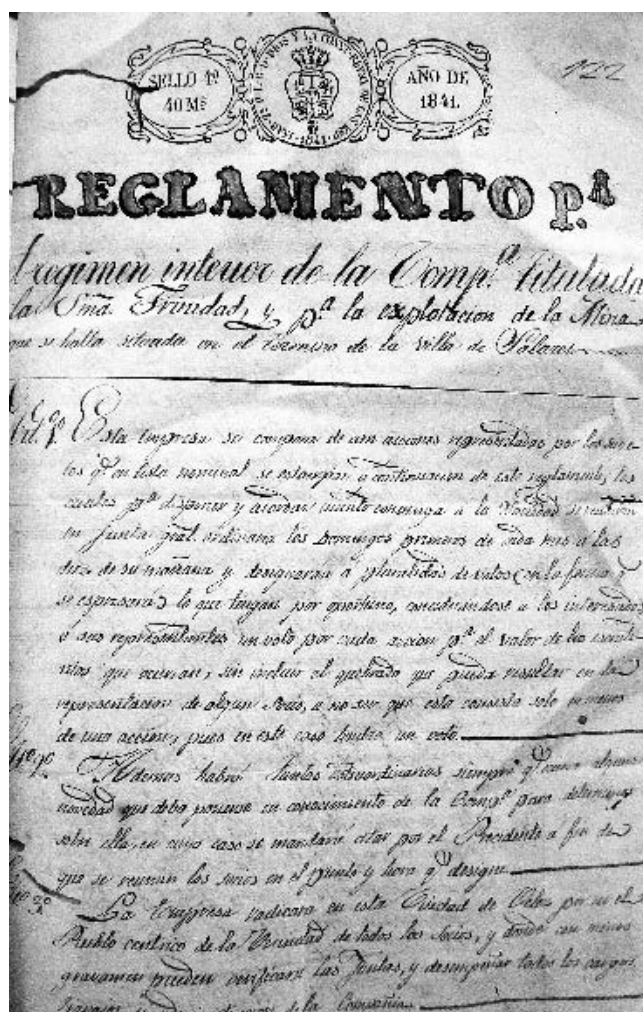 SELLO 4º
40 Ms
AÑO DE
1841.
122
REGLAMENTO p.ª
l regimen interior de la Comp.ª titulada
la Sma. Trinidad, y pª la explotacion de la Mina
que se halla situada en el termino de la villa de Salares
Art. 1º Esta Empresa se compone de cien acciones representadas por los suge-
tos q.e en lista nominal se estampan a continuacion de este reglamento, los
cuales pª disponer y acordar cuanto convenga a la Sociedad se reuniran
en junta gral. ordinaria los Domingos primeros de cada mes a las
diez de su mañana y designaran a pluralidad de votos (en la forma q.e
se espresará) lo que tengan por oportuno, concediendose a los interesados
o sus representantes un voto por cada accion pª el valor de los
que ocurran, sin incluir el quebrado que pueda resultar en la
representacion de algun Socio, a no ser que esta consista solo en menos
de una accion, pues en este caso tendra un voto.
Ademas habrá Juntas Estraordinarias siempre q.e ocurra alguna
novedad que deba ponerse en conocimiento de la Comp.ª para deliberar
sobre ella, en cuyo caso se mandará citar por el Precidente a fin de
que se reunan los socios en el punto y hora q.e designe.
La Empresa radicara en esta Ciudad de Velez por ser el
Pueblo centrico de la Vecindad de todos los Socios, y donde con menos
gravamen pueden verificarse las Juntas, y desempeñar todos los cargos
de la Compañia.